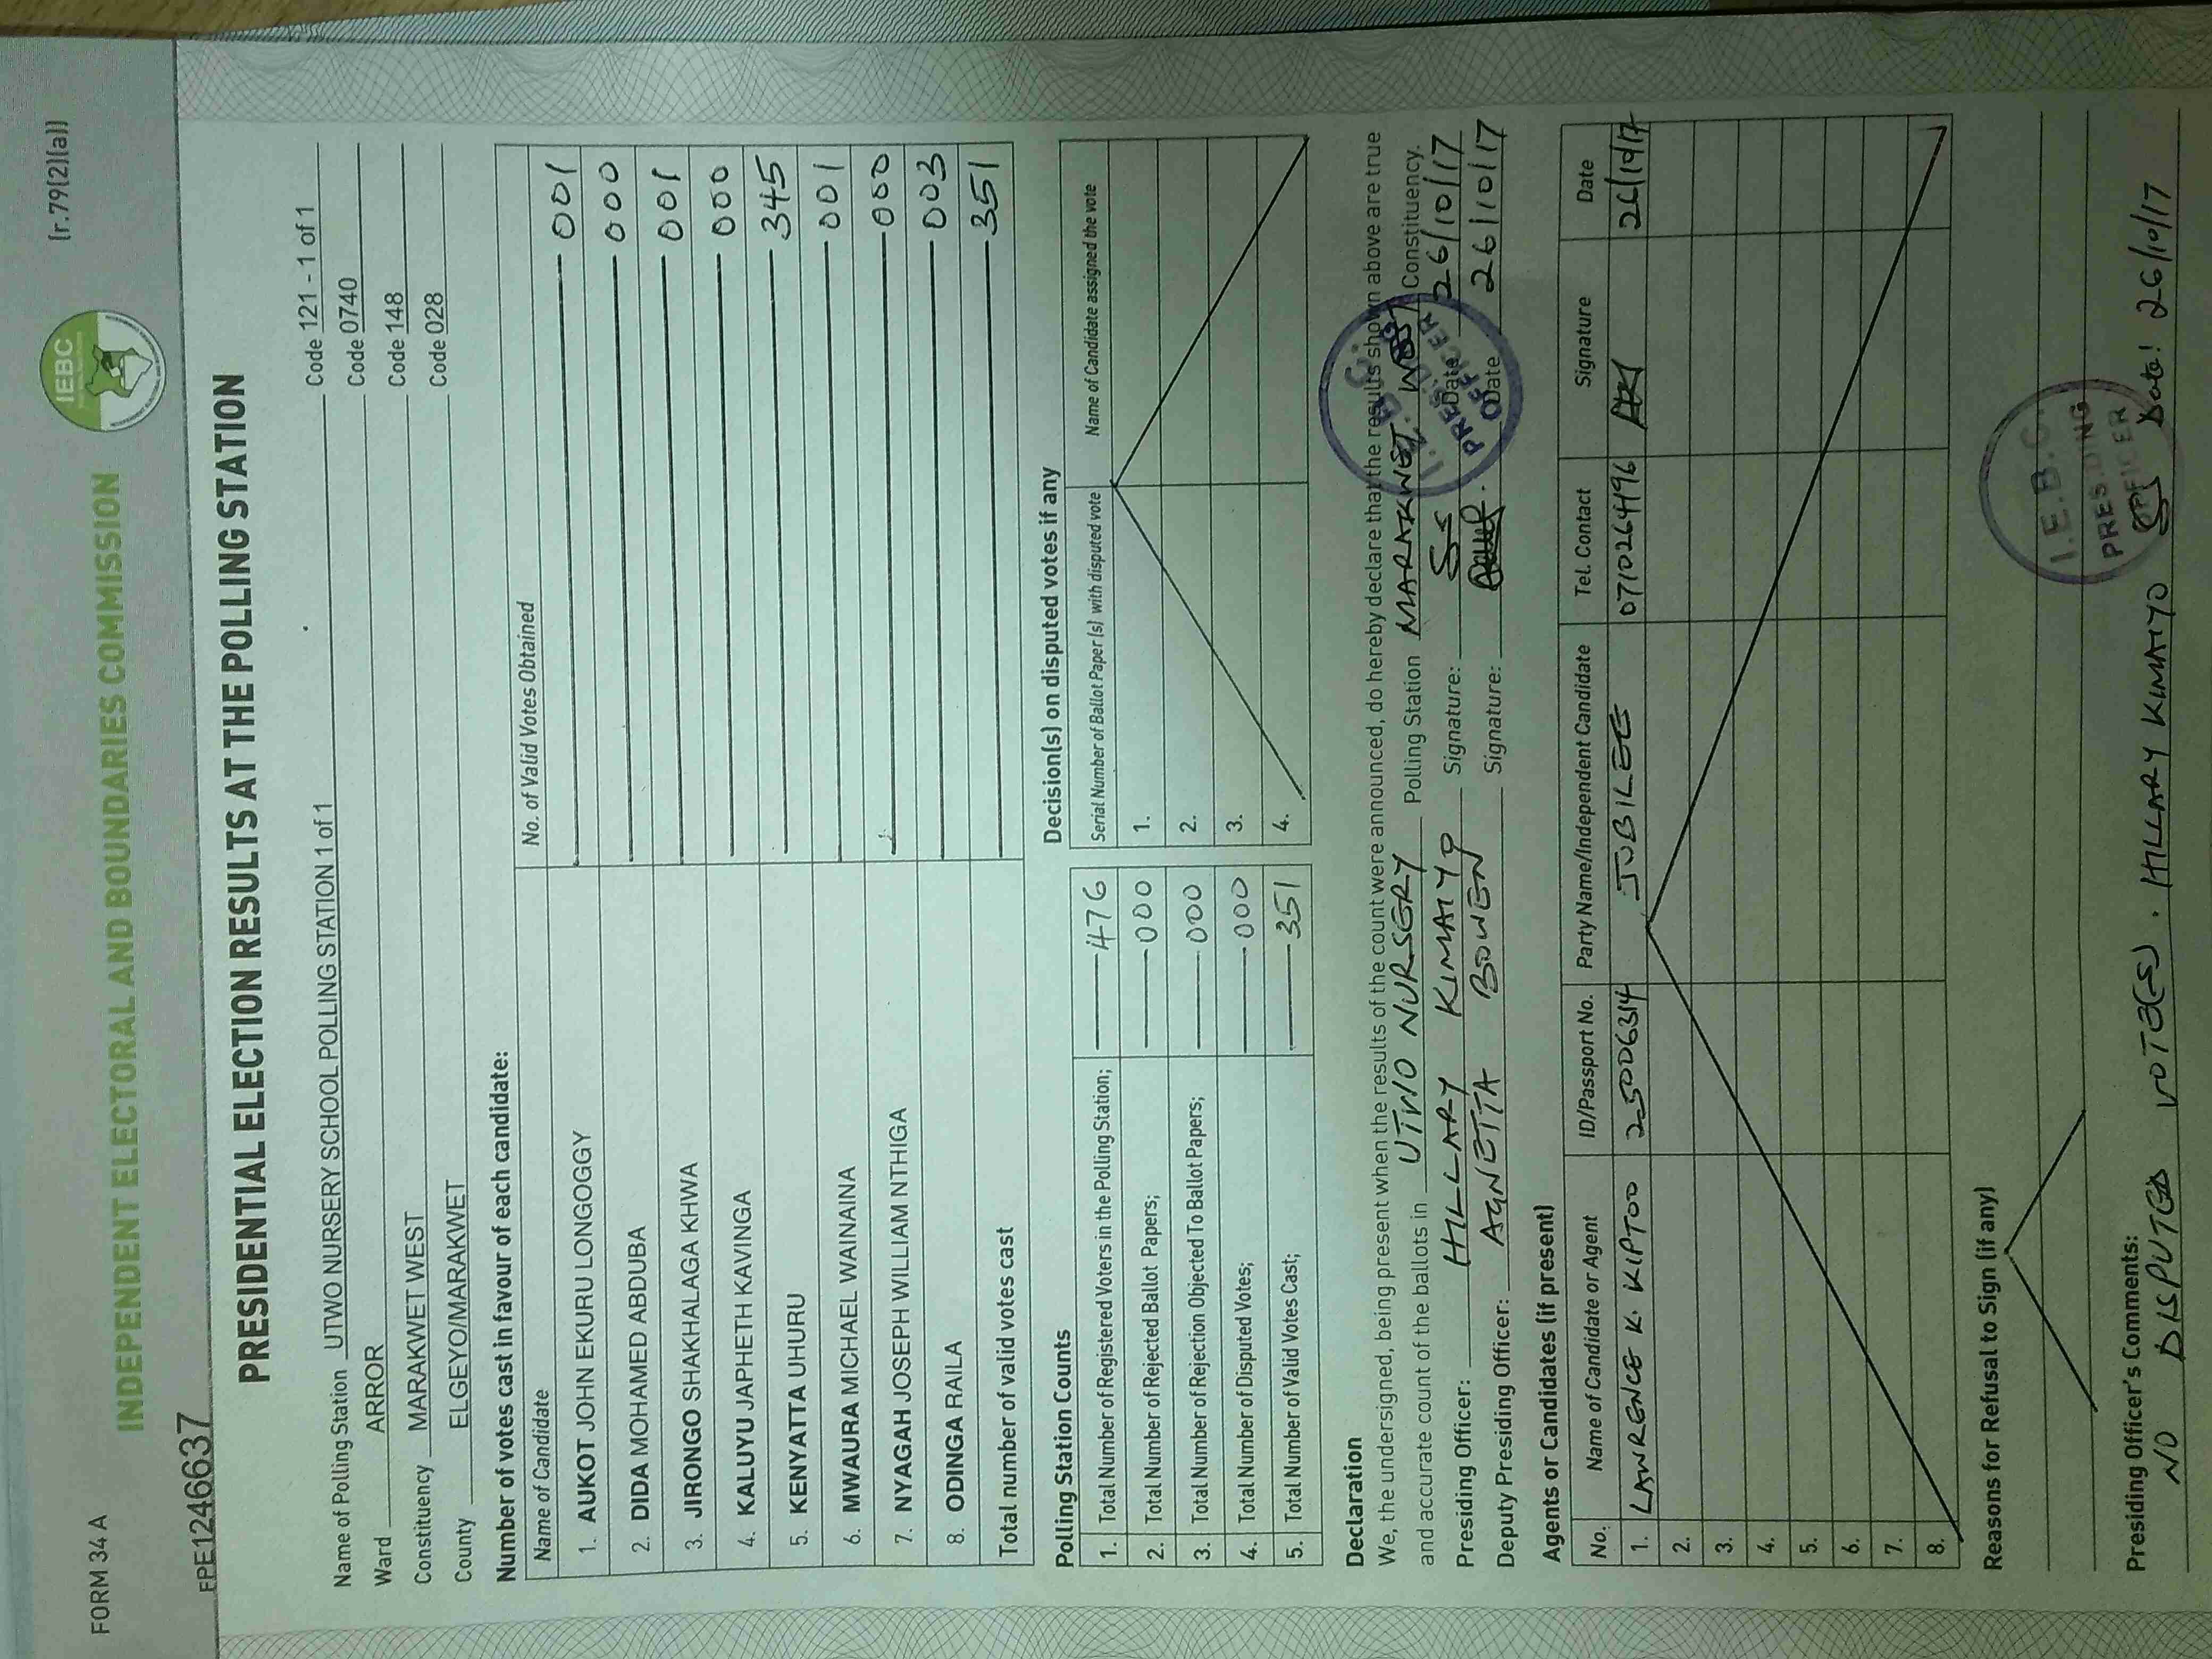 FORM 34 A
(r.79(2)(a))
IEBC
INDEPENDENT ELECTORAL AND BOUNDARIES COMMISSION
FPE1246637
PRESIDENTIAL ELECTION RESULTS AT THE POLLING STATION
Name of Polling Station UTWO NURSERY SCHOOL POLLING STATION 1 of 1 Code 121 - 1 of 1
Ward ARROR Code 0740
Constituency MARAKWET WEST Code 148
County ELGEYO/MARAKWET Code 028
Number of votes cast in favour of each candidate:
Name of Candidate No. of Valid Votes Obtained
1. AUKOT JOHN EKURU LONGOGGY 001
2. DIDA MOHAMED ABDUBA 000
3. JIRONGO SHAKHALAGA KHWA 001
4. KALUYU JAPHETH KAVINGA 000
5. KENYATTA UHURU 345
6. MWAURA MICHAEL WAINAINA 001
7. NYAGAH JOSEPH WILLIAM NTHIGA 000
8. ODINGA RAILA 003
Total number of valid votes cast 351
Polling Station Counts
1. Total Number of Registered Voters in the Polling Station; 476
2. Total Number of Rejected Ballot Papers; 000
3. Total Number of Rejection Objected To Ballot Papers; 000
4. Total Number of Disputed Votes; 000
5. Total Number of Valid Votes Cast; 351
Decision(s) on disputed votes if any
Serial Number of Ballot Paper (s) with disputed vote Name of Candidate assigned the vote
1.
2.
3.
4.
Declaration
We, the undersigned, being present when the results of the count were announced, do hereby declare that the results shown above are true
and accurate count of the ballots in UTWO NURSERY Polling Station MARAKWET WEST Constituency.
Presiding Officer: HILLARY KIMAIYO Signature: Date 26/10/17
Deputy Presiding Officer: AGNETTA BOWEN Signature: Date 26/10/17
I.E.B.C.
PRESIDING
OFFICER
Agents or Candidates (if present)
No. Name of Candidate or Agent ID/Passport No. Party Name/Independent Candidate Tel. Contact Signature Date
1. LAWRENCE K. KIPTOO 25006314 JUBILEE 0710264496 26/10/17
2.
3.
4.
5.
6.
7.
8.
Reasons for Refusal to Sign (if any)
I.E.B.C.
PRESIDING
OFFICER
Presiding Officer's Comments:
NO DISPUTED VOTE(S). HILLARY KIMAIYO Date: 26/10/17